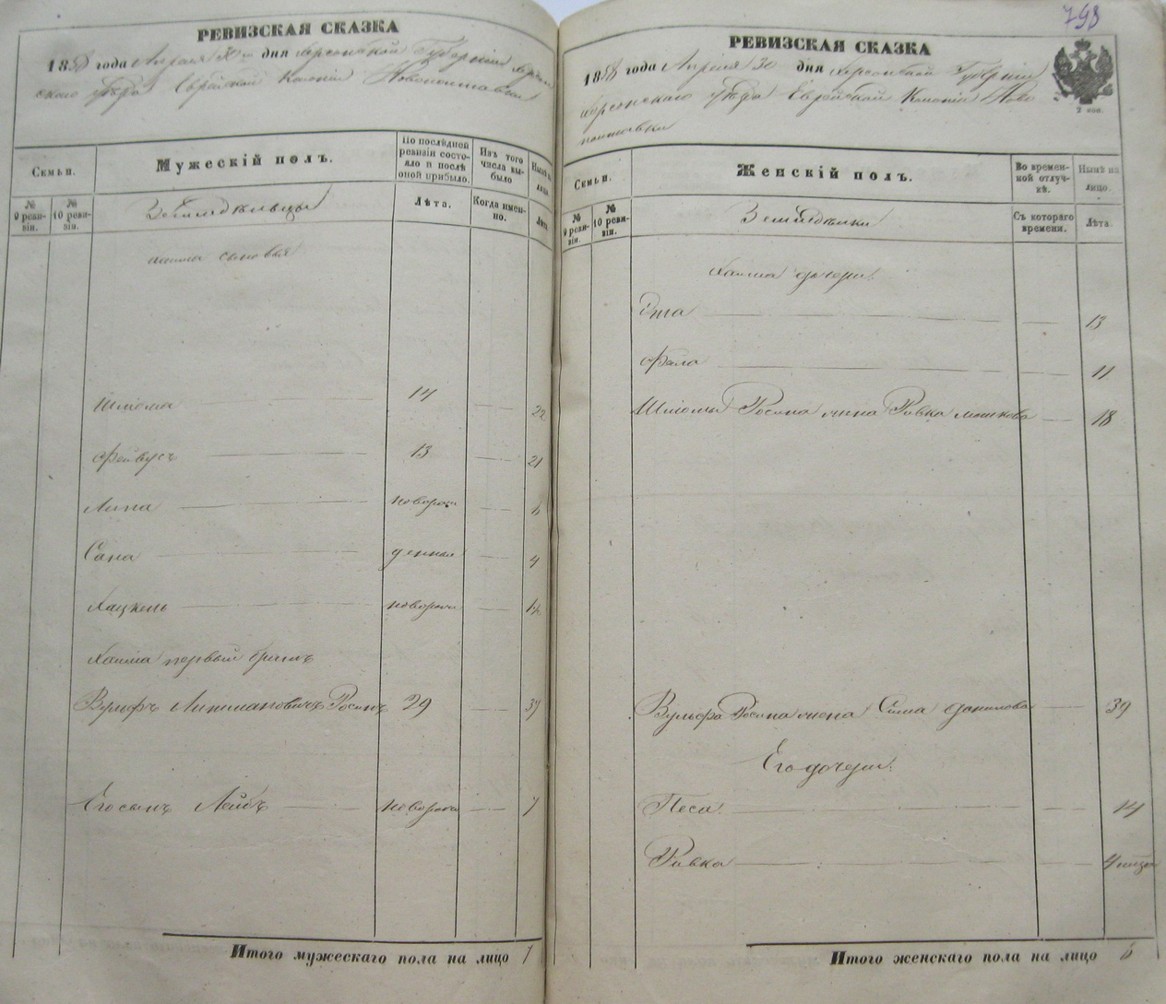 РЕВИЗСКАЯ СКАЗКА
1858 года Апреля 30 дня Херсонской Губерніи Херсон
скаго уѣзда Еврейской Колоніи Новополтавки
Семьи.
№ 9 реви-
зіи.
№ 10 реви-
зіи.
Мужескій полъ.
По послѣдней
ревизіи состо-
яло и послѣ
оной прибыло.
Лѣта.
Изъ того
числа вы-
было
Когда имен-
но.
Нынѣ на
лицо.
Лѣта.
Земледѣльцы
Хаима сыновья
Шлома 14 22
Фейвусъ 13 21
Липа новорож 6
Сана денная 4
Хацкель новорож
Хаима первый братъ
Вульфъ Липмановичъ Росинъ 29 37
Его сынъ Лейбъ новорож 7
Итого мужескаго пола на лицо 7
793
РЕВИЗСКАЯ СКАЗКА
1858 года Апреля 30 дня Херсонской Губерніи
Херсонскаго уѣзда Еврейской Колоніи Ново
полтавки
2 коп.
Семьи.
№ 9 реви-
зіи.
№ 10 реви-
зіи.
Женскій полъ.
Во времен-
ной отлуч-
кѣ.
Съ котораго
времени.
Нынѣ на
лицо.
Лѣта.
Земледѣлки
Хаима дочери
Эта 13
Фрала 11
Шломы Росина жена Ривка 18
Вульфа Росина жена Сима Данилова 39
Его дочери
Песа 14
Ривка 4
Итого женскаго пола на лицо 6